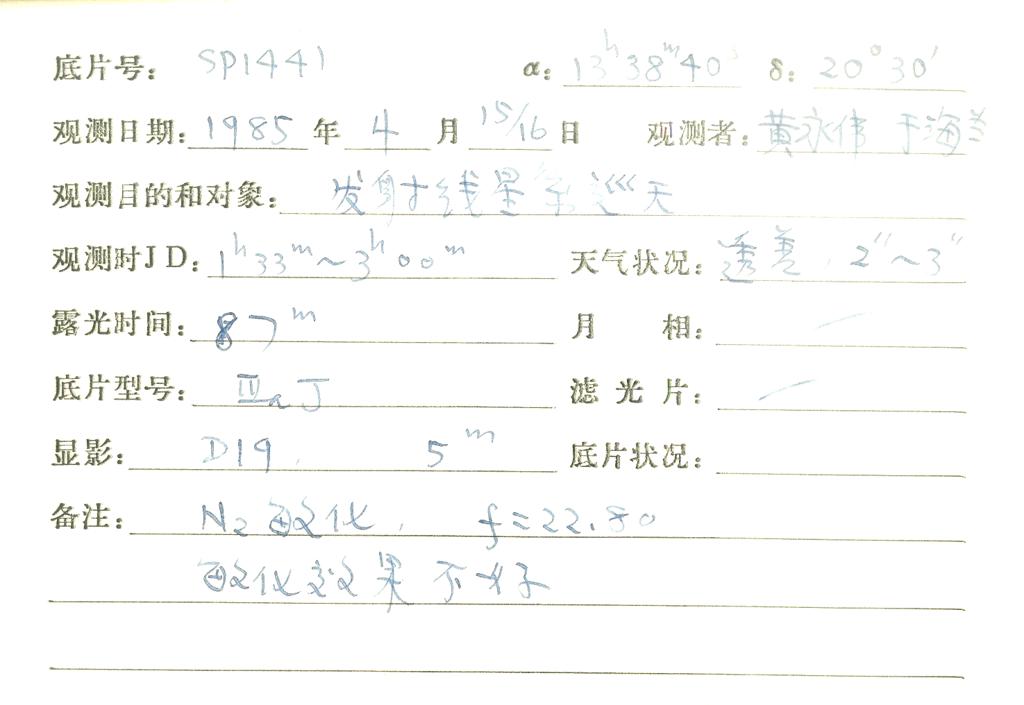 底片号: SP1441 α: 13ʰ38ᵐ40ˢ δ: 20°30′
观测日期: 1985 年 4 月 15/16 日 观测者: 黄永伟 于海兰
观测目的和对象: 发射线星系巡天
观测时JD: 1ʰ33ᵐ~3ʰ00ᵐ 天气状况: 透差, 2″~3″
露光时间: 87ᵐ 月 相: /
底片型号: ⅢaJ 滤 光 片: /
显影: D19, 5ᵐ 底片状况:
备注: N₂敏化, f=22.80
敏化效果不好